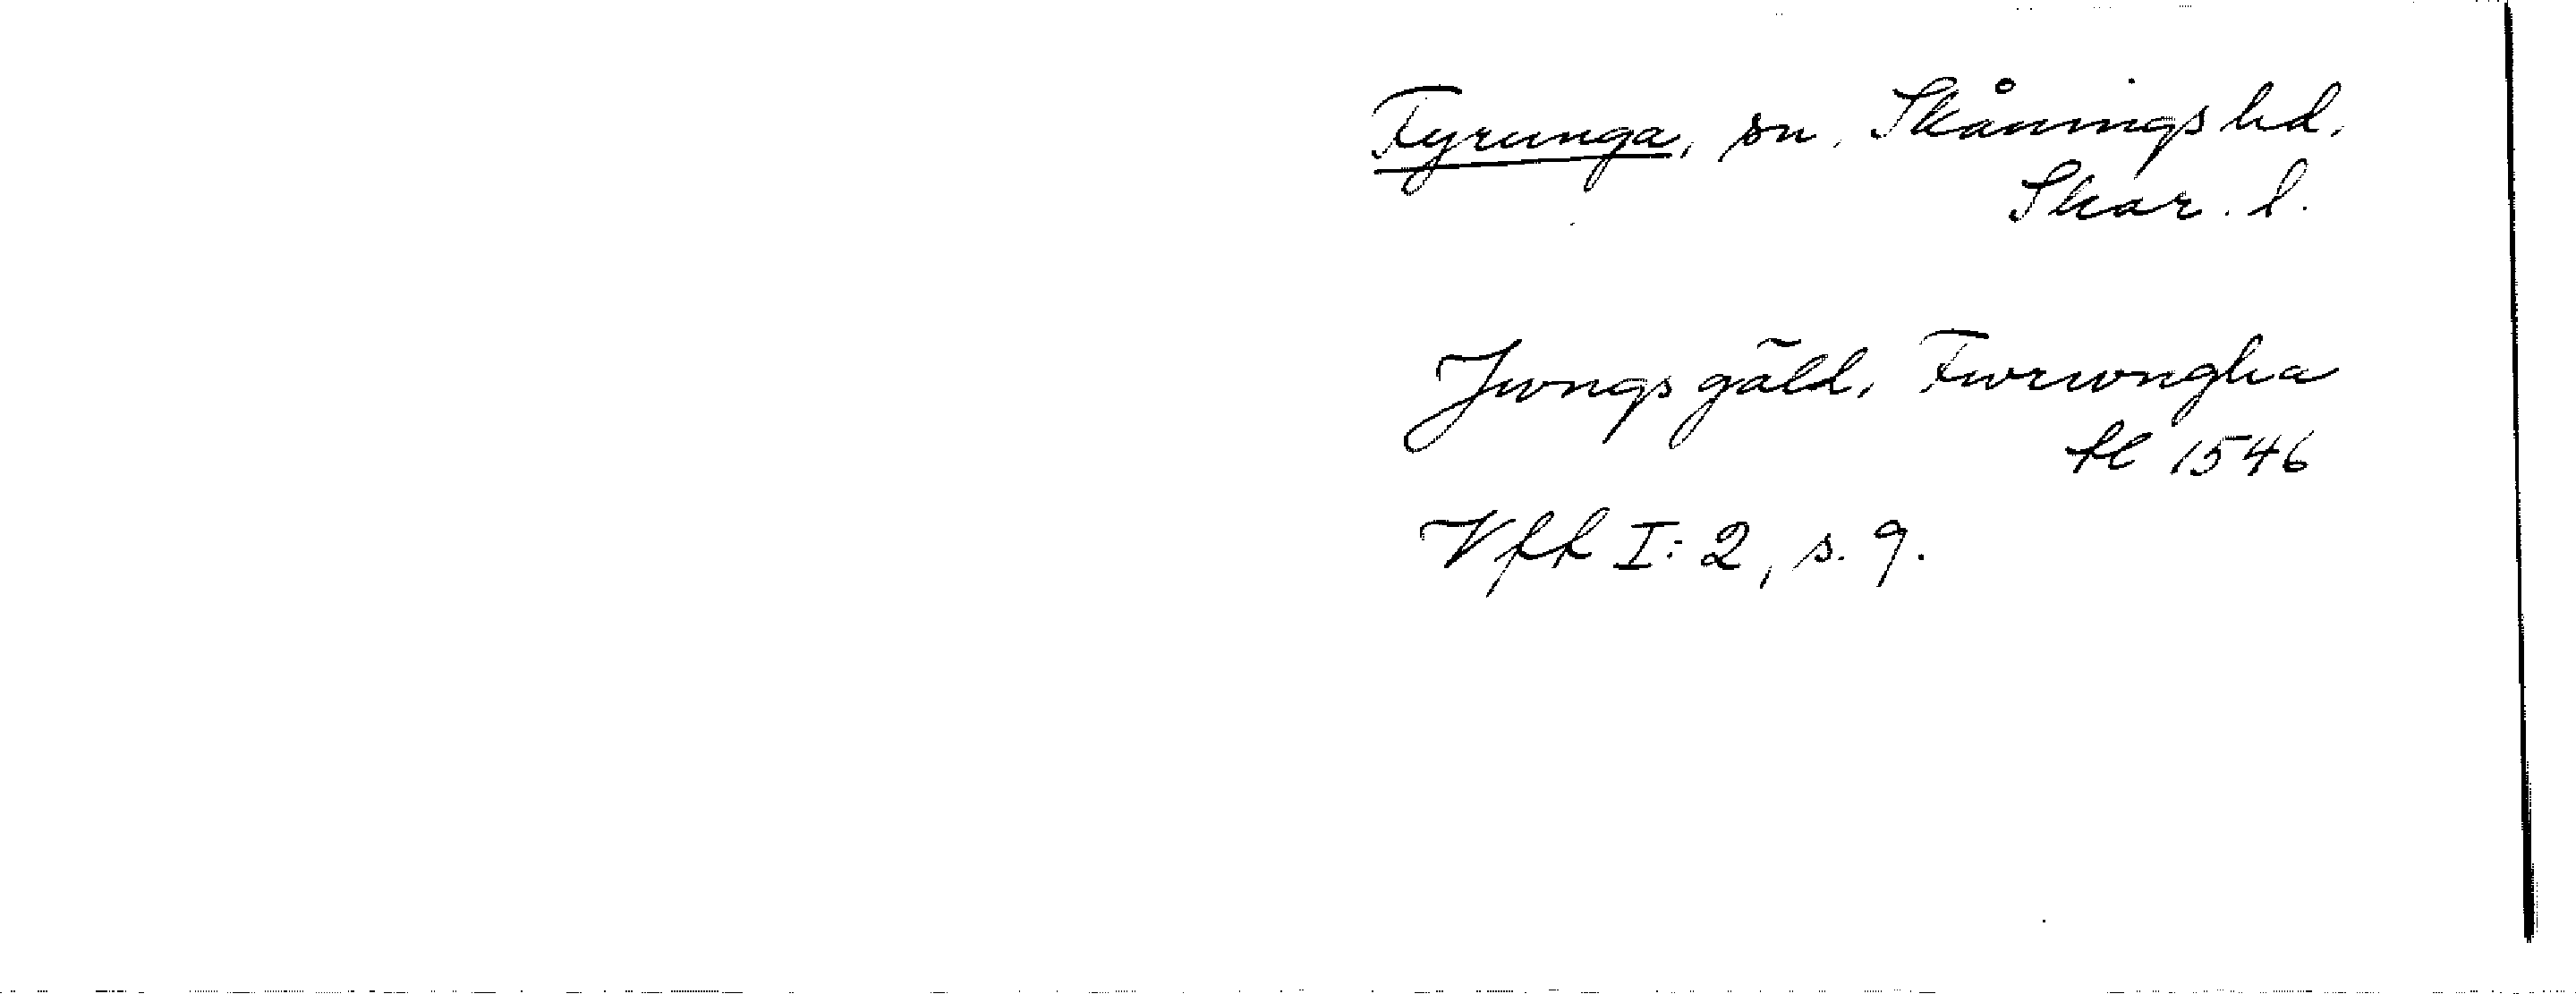 Fyrunga, sn, Skånings hd.
Skar. l.
Jwngs gäld, Fwrwngha
fl 1546
Vff I: 2, s. 9.